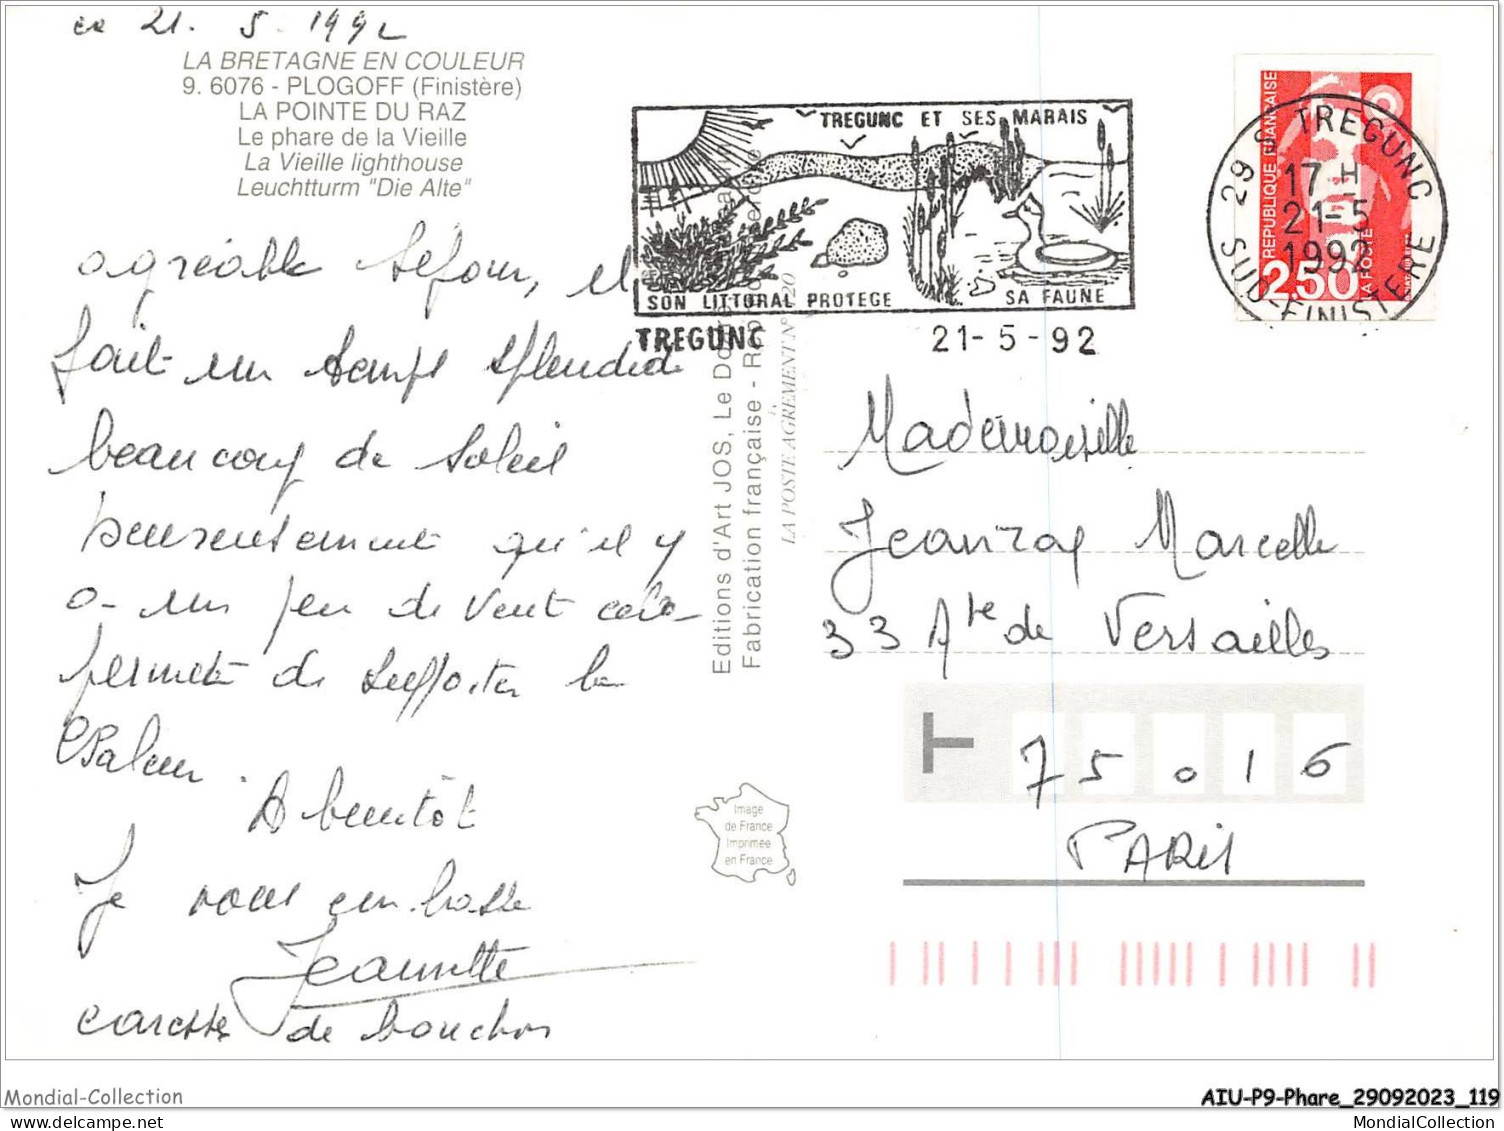 ce 21. 5. 1992
LA BRETAGNE EN COULEUR
9. 6076 - PLOGOFF (Finistère)
LA POINTE DU RAZ
Le phare de la Vieille
La Vieille lighthouse
Leuchtturm "Die Alte"
agréable séjour, il
fait un temps splendide
beaucoup de soleil
heureusement qu'il y
a un peu de vent cela
permet de supporter la
chaleur.
A bientôt
Je vous embrasse
Jeannette
caresse de bouchon
TREGUNC ET SES MARAIS
SON LITTORAL PROTEGE
SA FAUNE
TREGUNC
21-5-92
REPUBLIQUE FRANÇAISE
2,50
LA POSTE
29 S TREGUNC
17 H
21-5
1992
SUD-FINISTERE
Editions d'Art JOS, Le Do
Fabrication française - R
LA POSTE AGREMENT N° 20
Mademoiselle
Marcelle
33 Ate de Versailles
75016
PARIS
Image
de France
Imprimée
en France
Mondial-Collection
AIU-P9-Phare_29092023_119
www.delcampe.net
MondialCollection